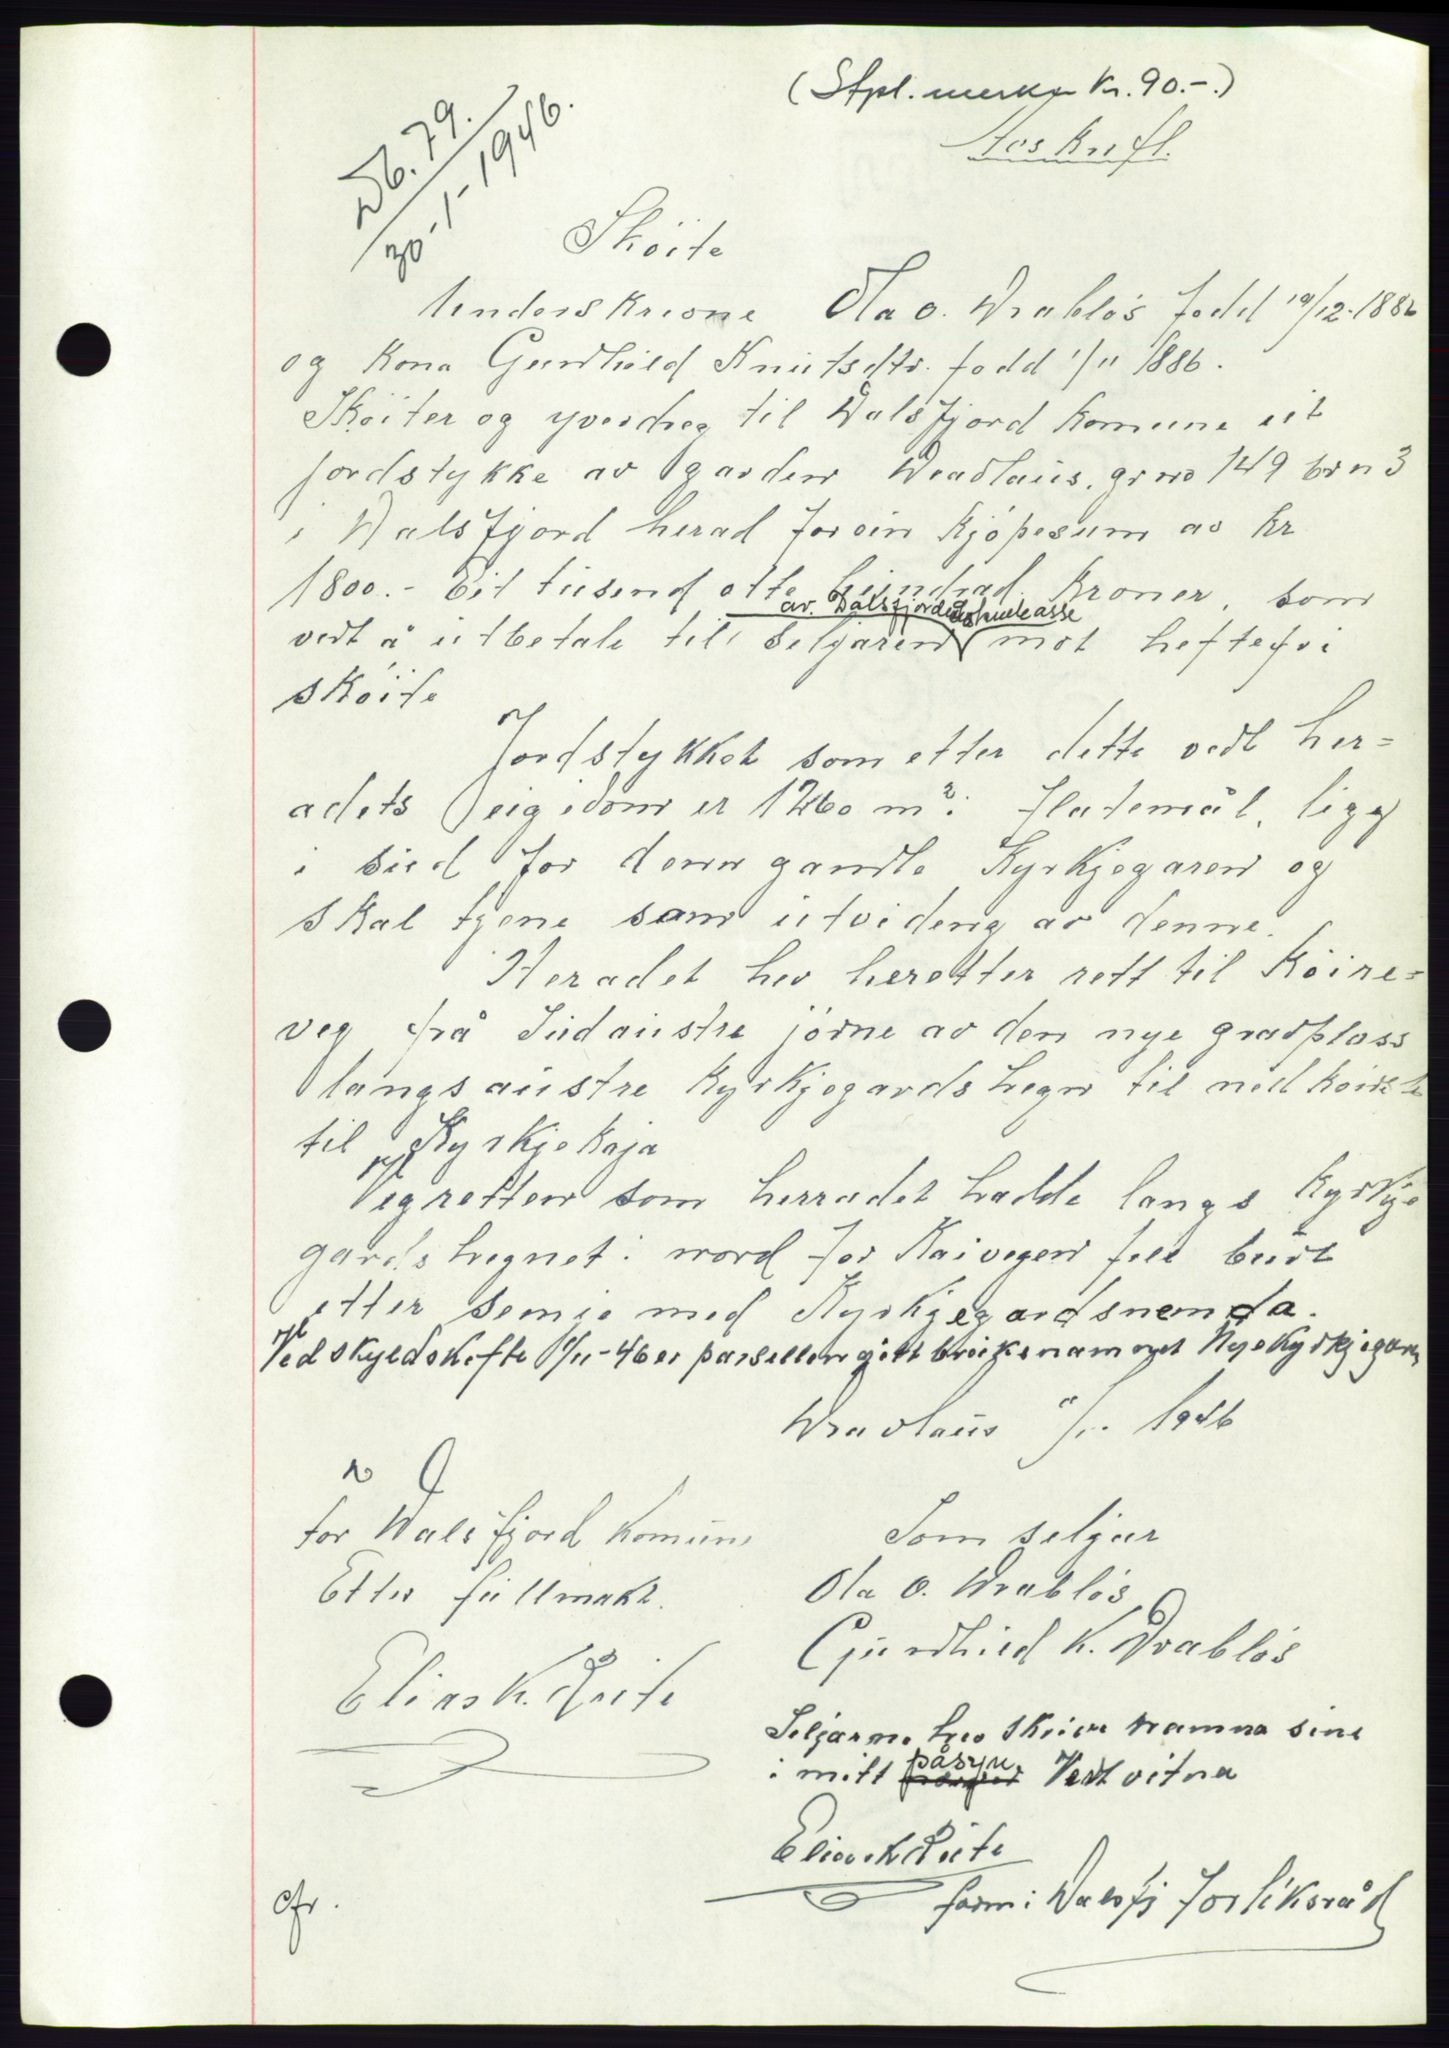 (Stpl. merke kr. 90.-.)
Avskrift.
Db. 79.
30-1-1946.
Sköite
Underskrivne Ola O. Drabløs fødd 19/12-1882
og kona Gurdhild Knutsdtr. fødd 1/11 1886.
Sköiter og yverdreg til Dalsfjord komune eit
jordstykke av garden Dravlaus, grno 149 brn 3
i Dalsfjord herad for ein kjöpesum av kr
1800.- Eit tusend otte hundrad kroner, som
av Dalsfjord
vert å utbetale til seljaren mot heftefri
sköite
Jordstykket som etter dette vert her=
adets eigedom er 1260 m² i flatemål, ligg
i sud for denn gamle Kyrkjegaren og
skal tjene som utviding av denne.
Heradet hev heretter rett til Köire=
veg frå Sudaustre jörne av den nye gravplass
langs austre Kyrkjegardshegn til
til Kyrkjekaja
Vegretten som herradet hadde langs Kyrkje
gardshegnet i nord for Kaivegen fell burt
etter semje med Kyrkjegardsnemda.
Ved skyldskifte 11/11-46 er parsellen gitt bruksnamnet Nye Kyrkjegard
Dravlaus 11/11 1946
for Dalsfjord Komune
Som seljar
Etter fullmakt.
Ola O. Drabløs
Gurdhild K. Drabløs
Elias K. Reite
Seljarne hev skrive namna sine
i mitt påsyn. Vert vitna
Elias K Reite
form: Dalsfj Forliksråd